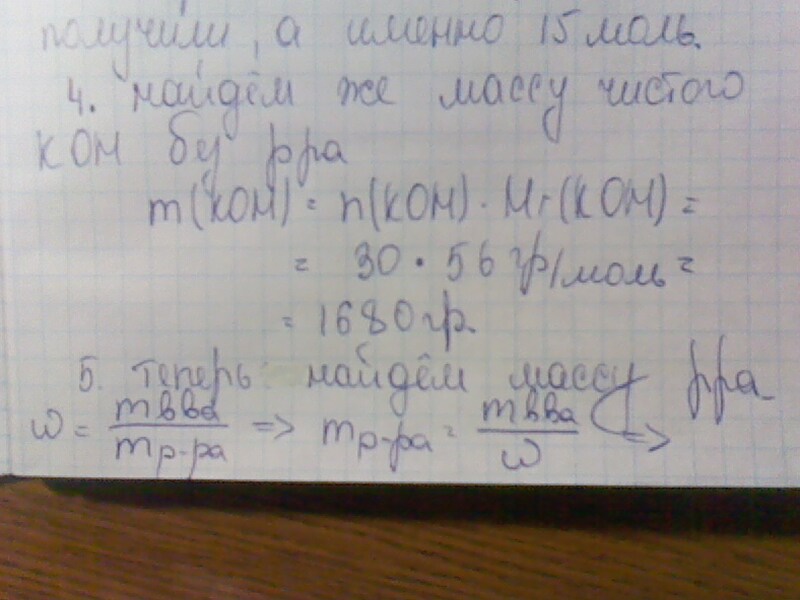 получили, а именно 15 моль.
4. найдём же массу чистого
KOH бу рра
m(KOH) = n(KOH) · Mr(KOH) =
= 30 · 56 гр/моль =
= 1680 гр.
5. теперь найдём массу рра
ω = mвва / mр-ра => mр-ра = mвва / ω =>